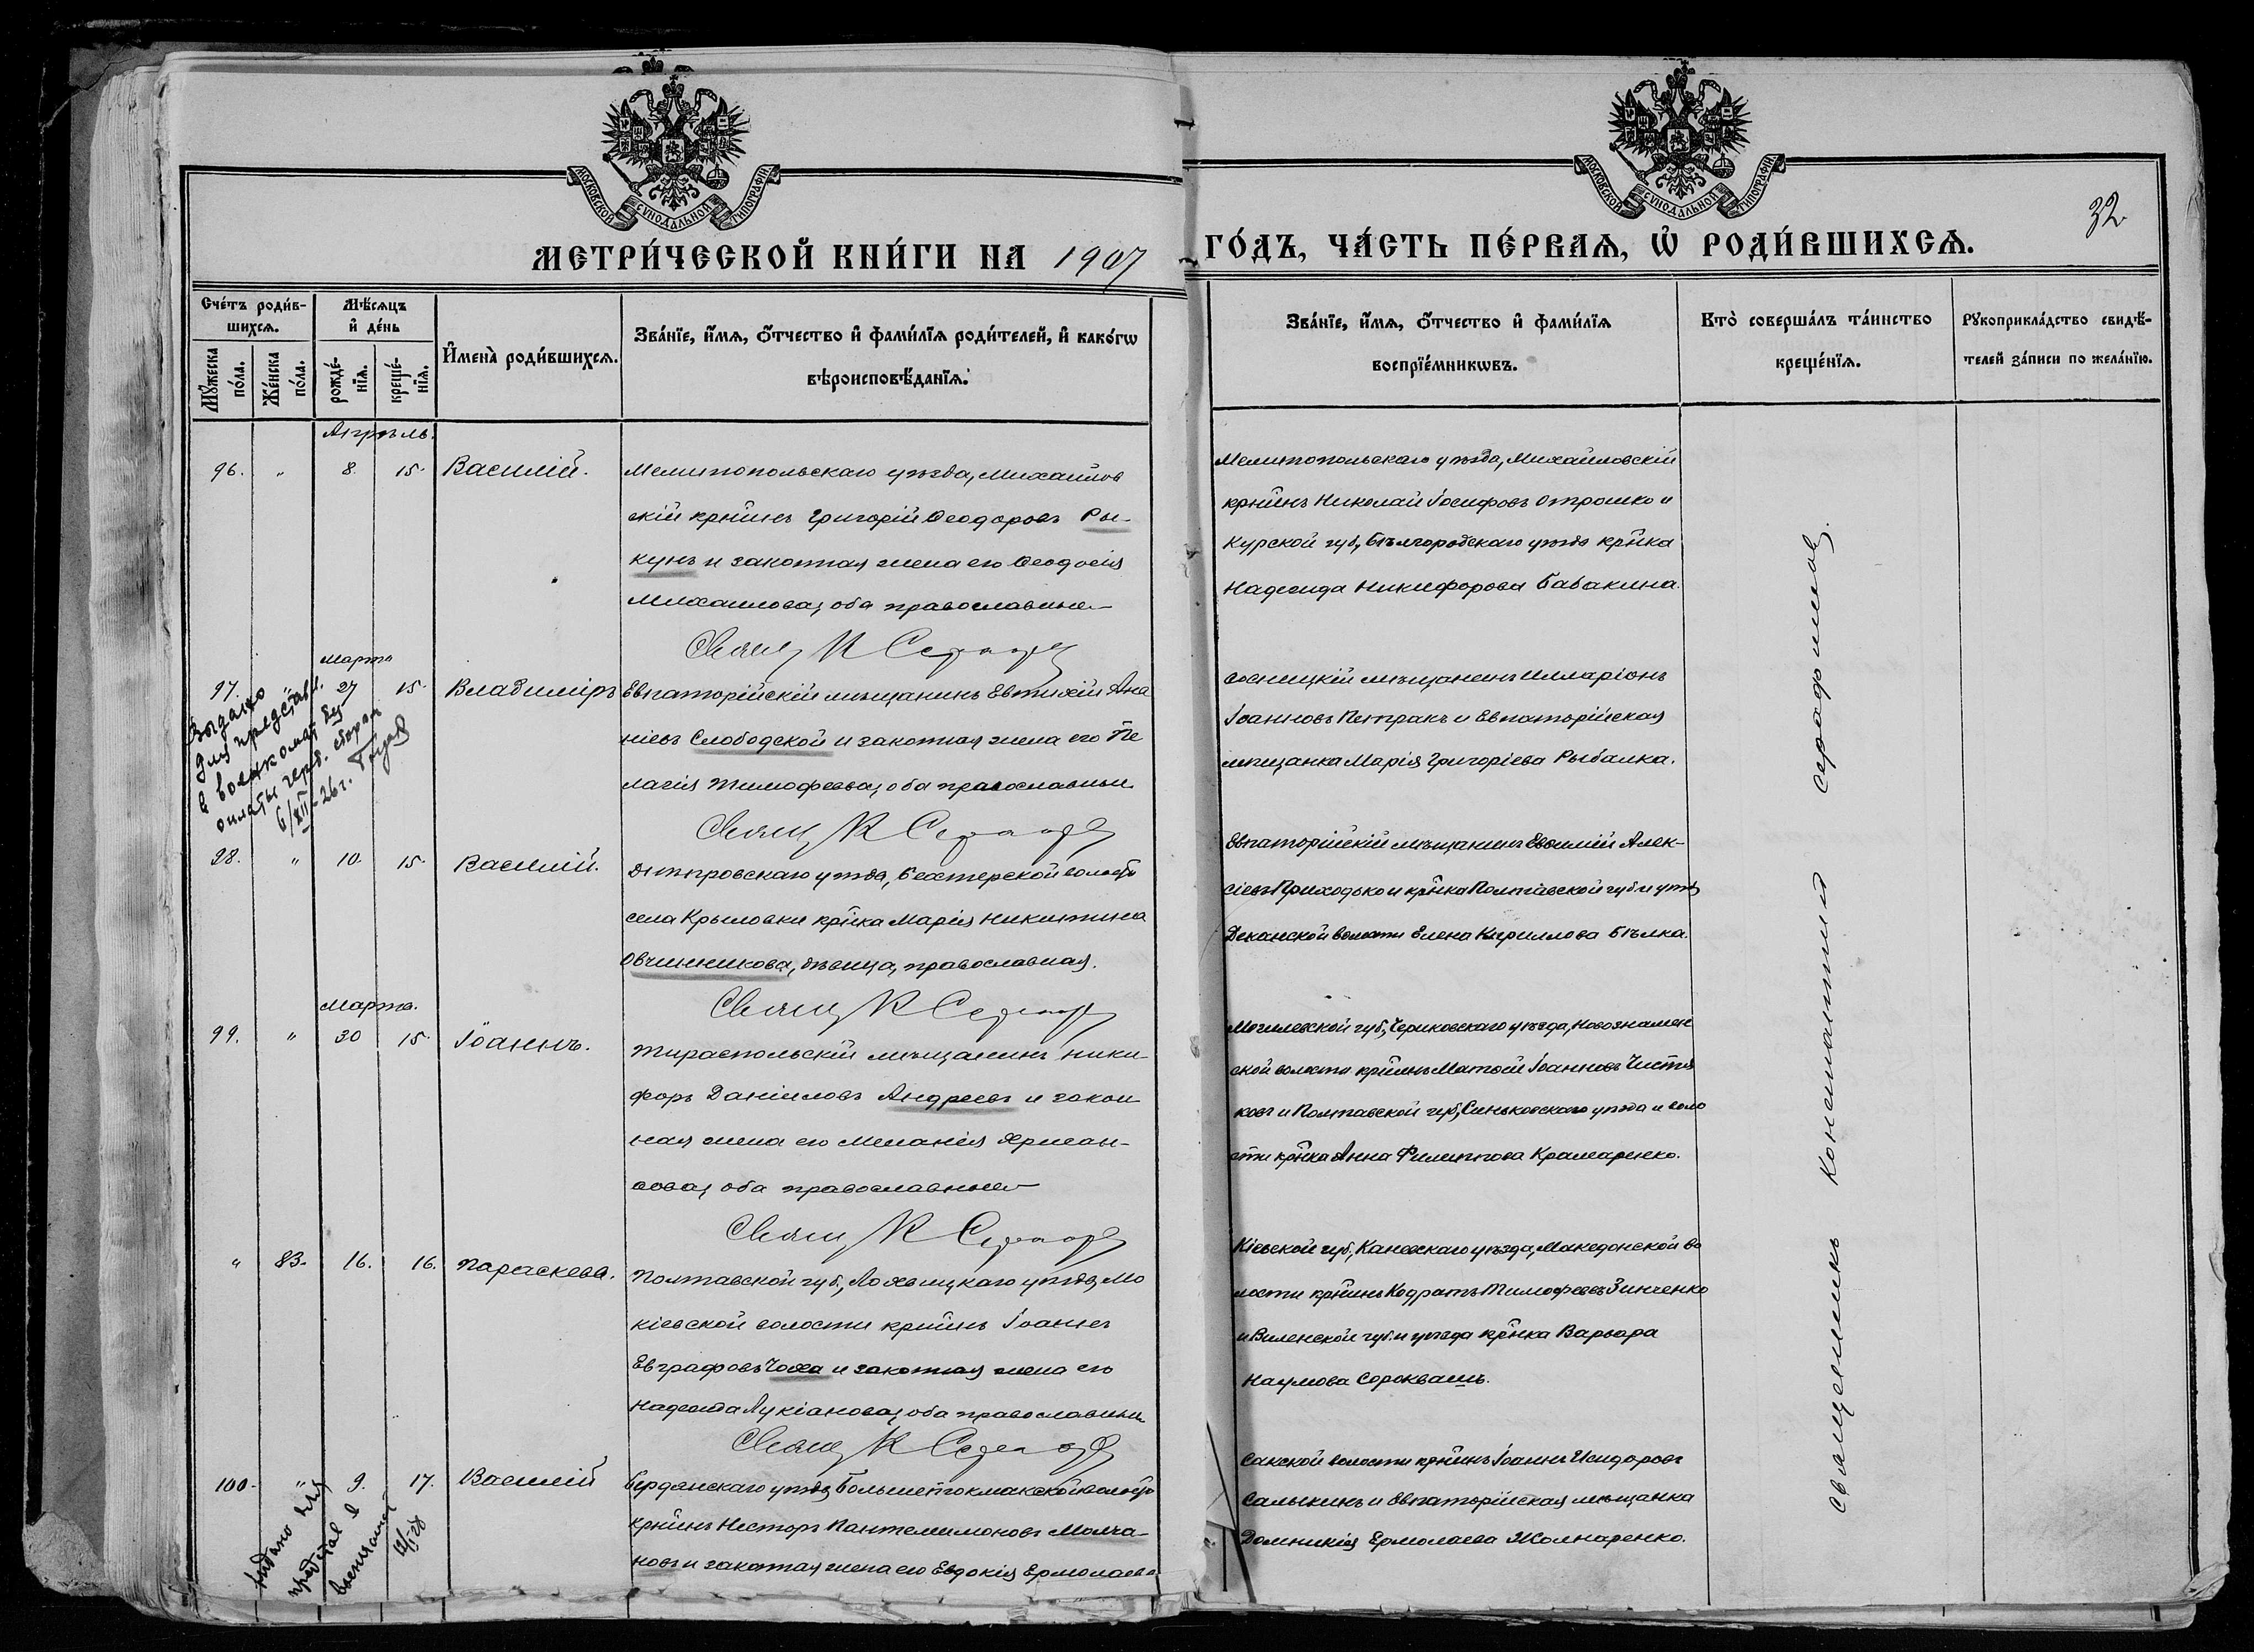 МОСКОВСКОЙ СѴНОДАЛЬНОЙ ТИПОГРАФІИ
МОСКОВСКОЙ СѴНОДАЛЬНОЙ ТИПОГРАФІИ
32
МЕТРИ́ЧЕСКОЙ КНИ́ГИ НА 1907 ГО́ДЪ, ЧА́СТЬ ПЕ́РВАѦ, Ѡ҆ РОДИ́ВШИХСѦ.
Сче́тъ роди́в-
шихсѧ.
Мѣ́сѧцъ
и҆ де́нь
Мꙋ́жеска
по́ла.
Же́нска
по́ла.
рожде́-
нїѧ.
креще́-
нїѧ.
И҆мена̀ роди́вшихсѧ.
Зва́нїе, и҆́мѧ, ѻ҆́тчество и҆ фами́лїѧ роди́телей, и҆ како́гѡ
вѣроисповѣ́данїѧ.
Зва́нїе, и҆́мѧ, ѻ҆́тчество и҆ фами́лїѧ
воспрїе́мникѡвъ.
Кто̀ соверша́лъ та́инство
креще́нїѧ.
Рꙋкоприкла́дство свидѣ́-
телей за́писи по жела́нїю.
Апрѣль.
96. " 8. 15. Василій.
Мелитопольскаго уѣзда, Михайлов
скій крнинъ Григорій Ѳеодоровъ Ры-
кунъ и законная жена его Ѳеодосія
Михаилова, оба православные
Свящ К Серафи
Мелитопольскаго уѣзда, Михайловскій
крнинъ Николай Іосифовъ Отрошко и
Курской губ, Бѣлгородскаго уѣзда крнка
Надежда Никифорова Бабакина.
Марта
97. " 27 15. Владиміръ
Евпаторійскій мѣщанинъ Евтихій Ана
ніевъ Слободской и законная жена его Пе
лагія Тимофеева, оба православные
Свящ К Серафи
Сосницкій мѣщанинъ Илларіонъ
Іоанновъ Петракъ и Евпаторійская
мѣщанка Марія Григоріева Рыбалка.
Выдано
для представл.
в военкомат
6/XII-26 г.
98. " 10. 15. Василій.
Днѣпровскаго уѣзда, Бехтерской волости
села Крыловки крнка Марія Никитина
Овчинникова, дѣвица, православная.
Свящ К Серафи
Евпаторійскій мѣщанинъ Евѳимій Алек-
сіевъ Приходько и крнка Полтавской губ и уѣзд
Деканской волости Елена Кириллова Бѣлка.
Марта.
99. " 30 15. Іоаннъ.
Тираспольскій мѣщанинъ Ники-
форъ Даніиловъ Андреевъ и закон
ная жена его Меланія
оба православные
Свящ К Серафи
Могилевской губ, Чериковскаго уѣзда, Новознамен
ской волости крнинъ Матѳій Іоанновъ Чистя
ковъ и Полтавской губ, Зиньковскаго уѣзда и воло
сти крнка Анна Филиппова Крамаренко.
" 83. 16. 16. Параскева.
Полтавской губ, Лохвицкаго уѣзда, Мо
кіевской волости крнинъ Іоаннъ
Евграфовъ Чоха и законная жена его
Надежда Лукіанова, оба православные
Свящ К Серафи
Кіевской губ, Каневскаго уѣзда, Македонской во
лости крнинъ Кодратъ Тимофеевъ Зинченко
и Виленской губ. и уѣзда крнка Варвара
Наумова Сороквашъ.
100. " 9. 17. Василій
Бердянскаго уѣзда, Большетокмакской волости
крнинъ Несторъ Пантелимоновъ Молча-
новъ и законная жена его Евдокія Ермолаева
Сакской волости крнинъ Іоаннъ Исидоровъ
Салыкинъ и Евпаторійская мѣщанка
Домникія Ермолаева Жолнаренко.
Выдано для
представ в
Священникъ Константинъ Серафимовъ.